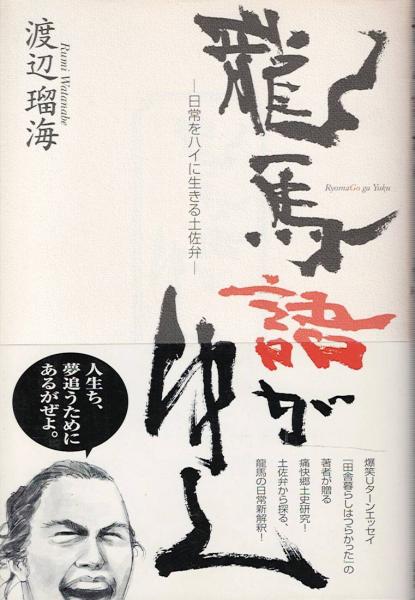 龍馬語がゆく
RyomaGo ga Yuku
―日常をハイに生きる土佐弁―
渡辺瑠海
Rumi Watanabe
人生ち、
夢追うために
あるがぜよ。
爆笑Uターンエッセイ
「田舎暮らしはつらかった」の
著者が贈る
痛快郷土史研究!
土佐弁から探る、
龍馬の日常新解釈!